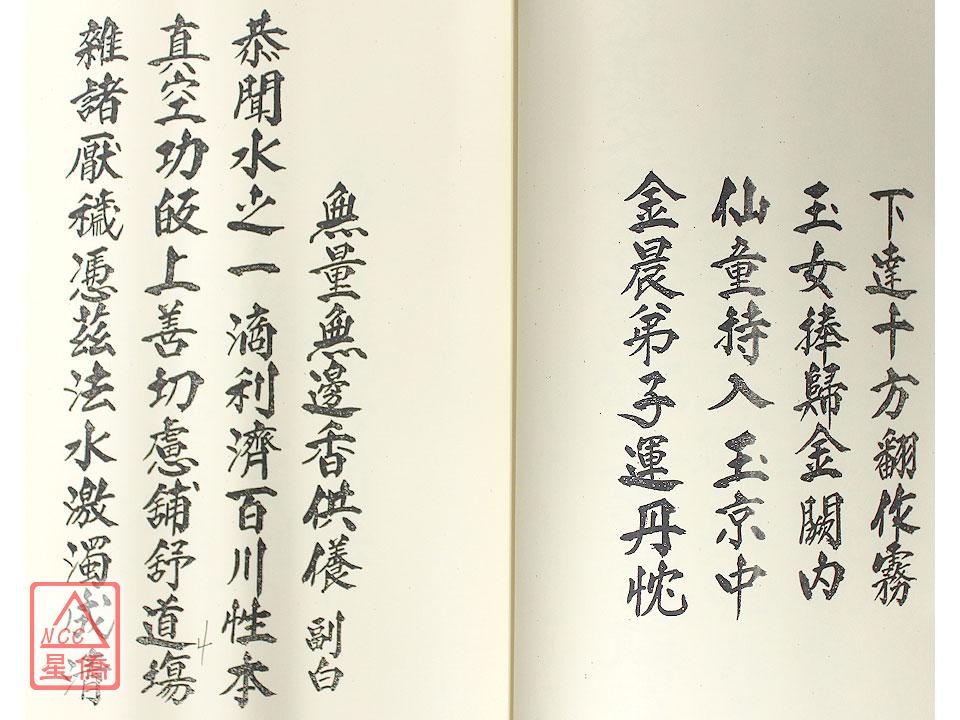 下達十方翻作霧
玉女捧歸金闕內
仙童持入玉京中
金晨弟子運丹忱
無量無邊香供養 副白
恭聞水之一滴利濟百川性本
真空功皈上善切慮舖舒道場
雜諸厭穢憑茲法水激濁
4
NCC
星僑